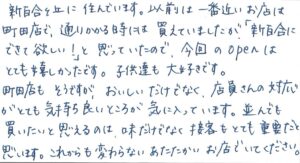 新百合ヶ丘に住んでいます。以前は一番近いお店は
町田店で、通りかかる時には買えていましたが「新百合に
できて欲しい!」と思っていたので、今回のopenは
とても嬉しかったです。子供達も大好きです。
町田店もそうですが、おいしいだけでなく、店員さんの対応
がとても気持ち良いところが気に入っています。並んでも
買いたいと思えるのは、味だけでなく接客もとても重要だと
思います。これからも変わらないあたたかいお店でいてください。